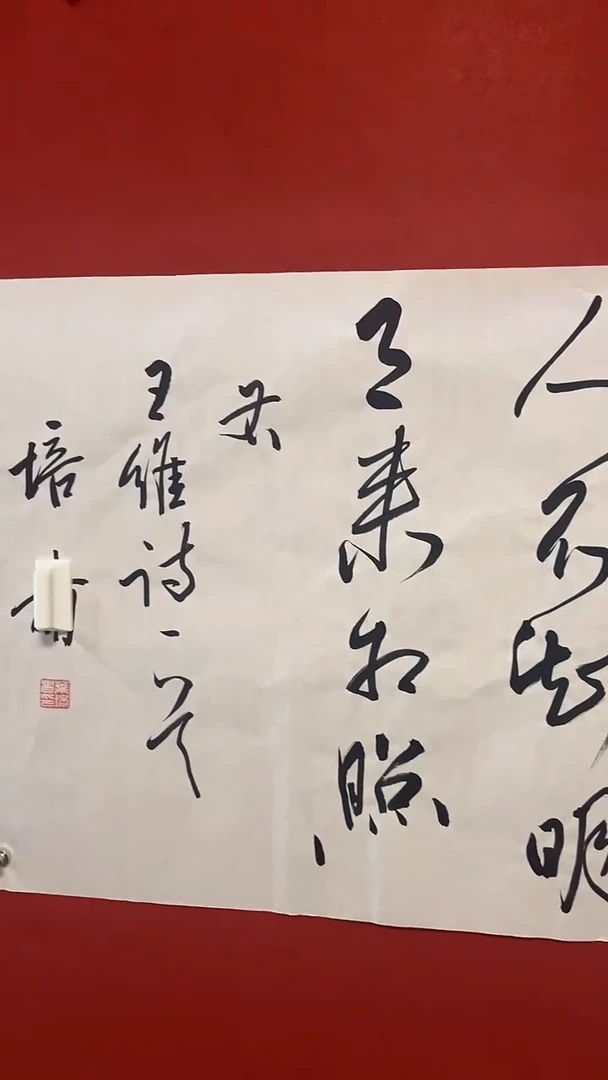 人不知明
月来相照
王维诗一首
培